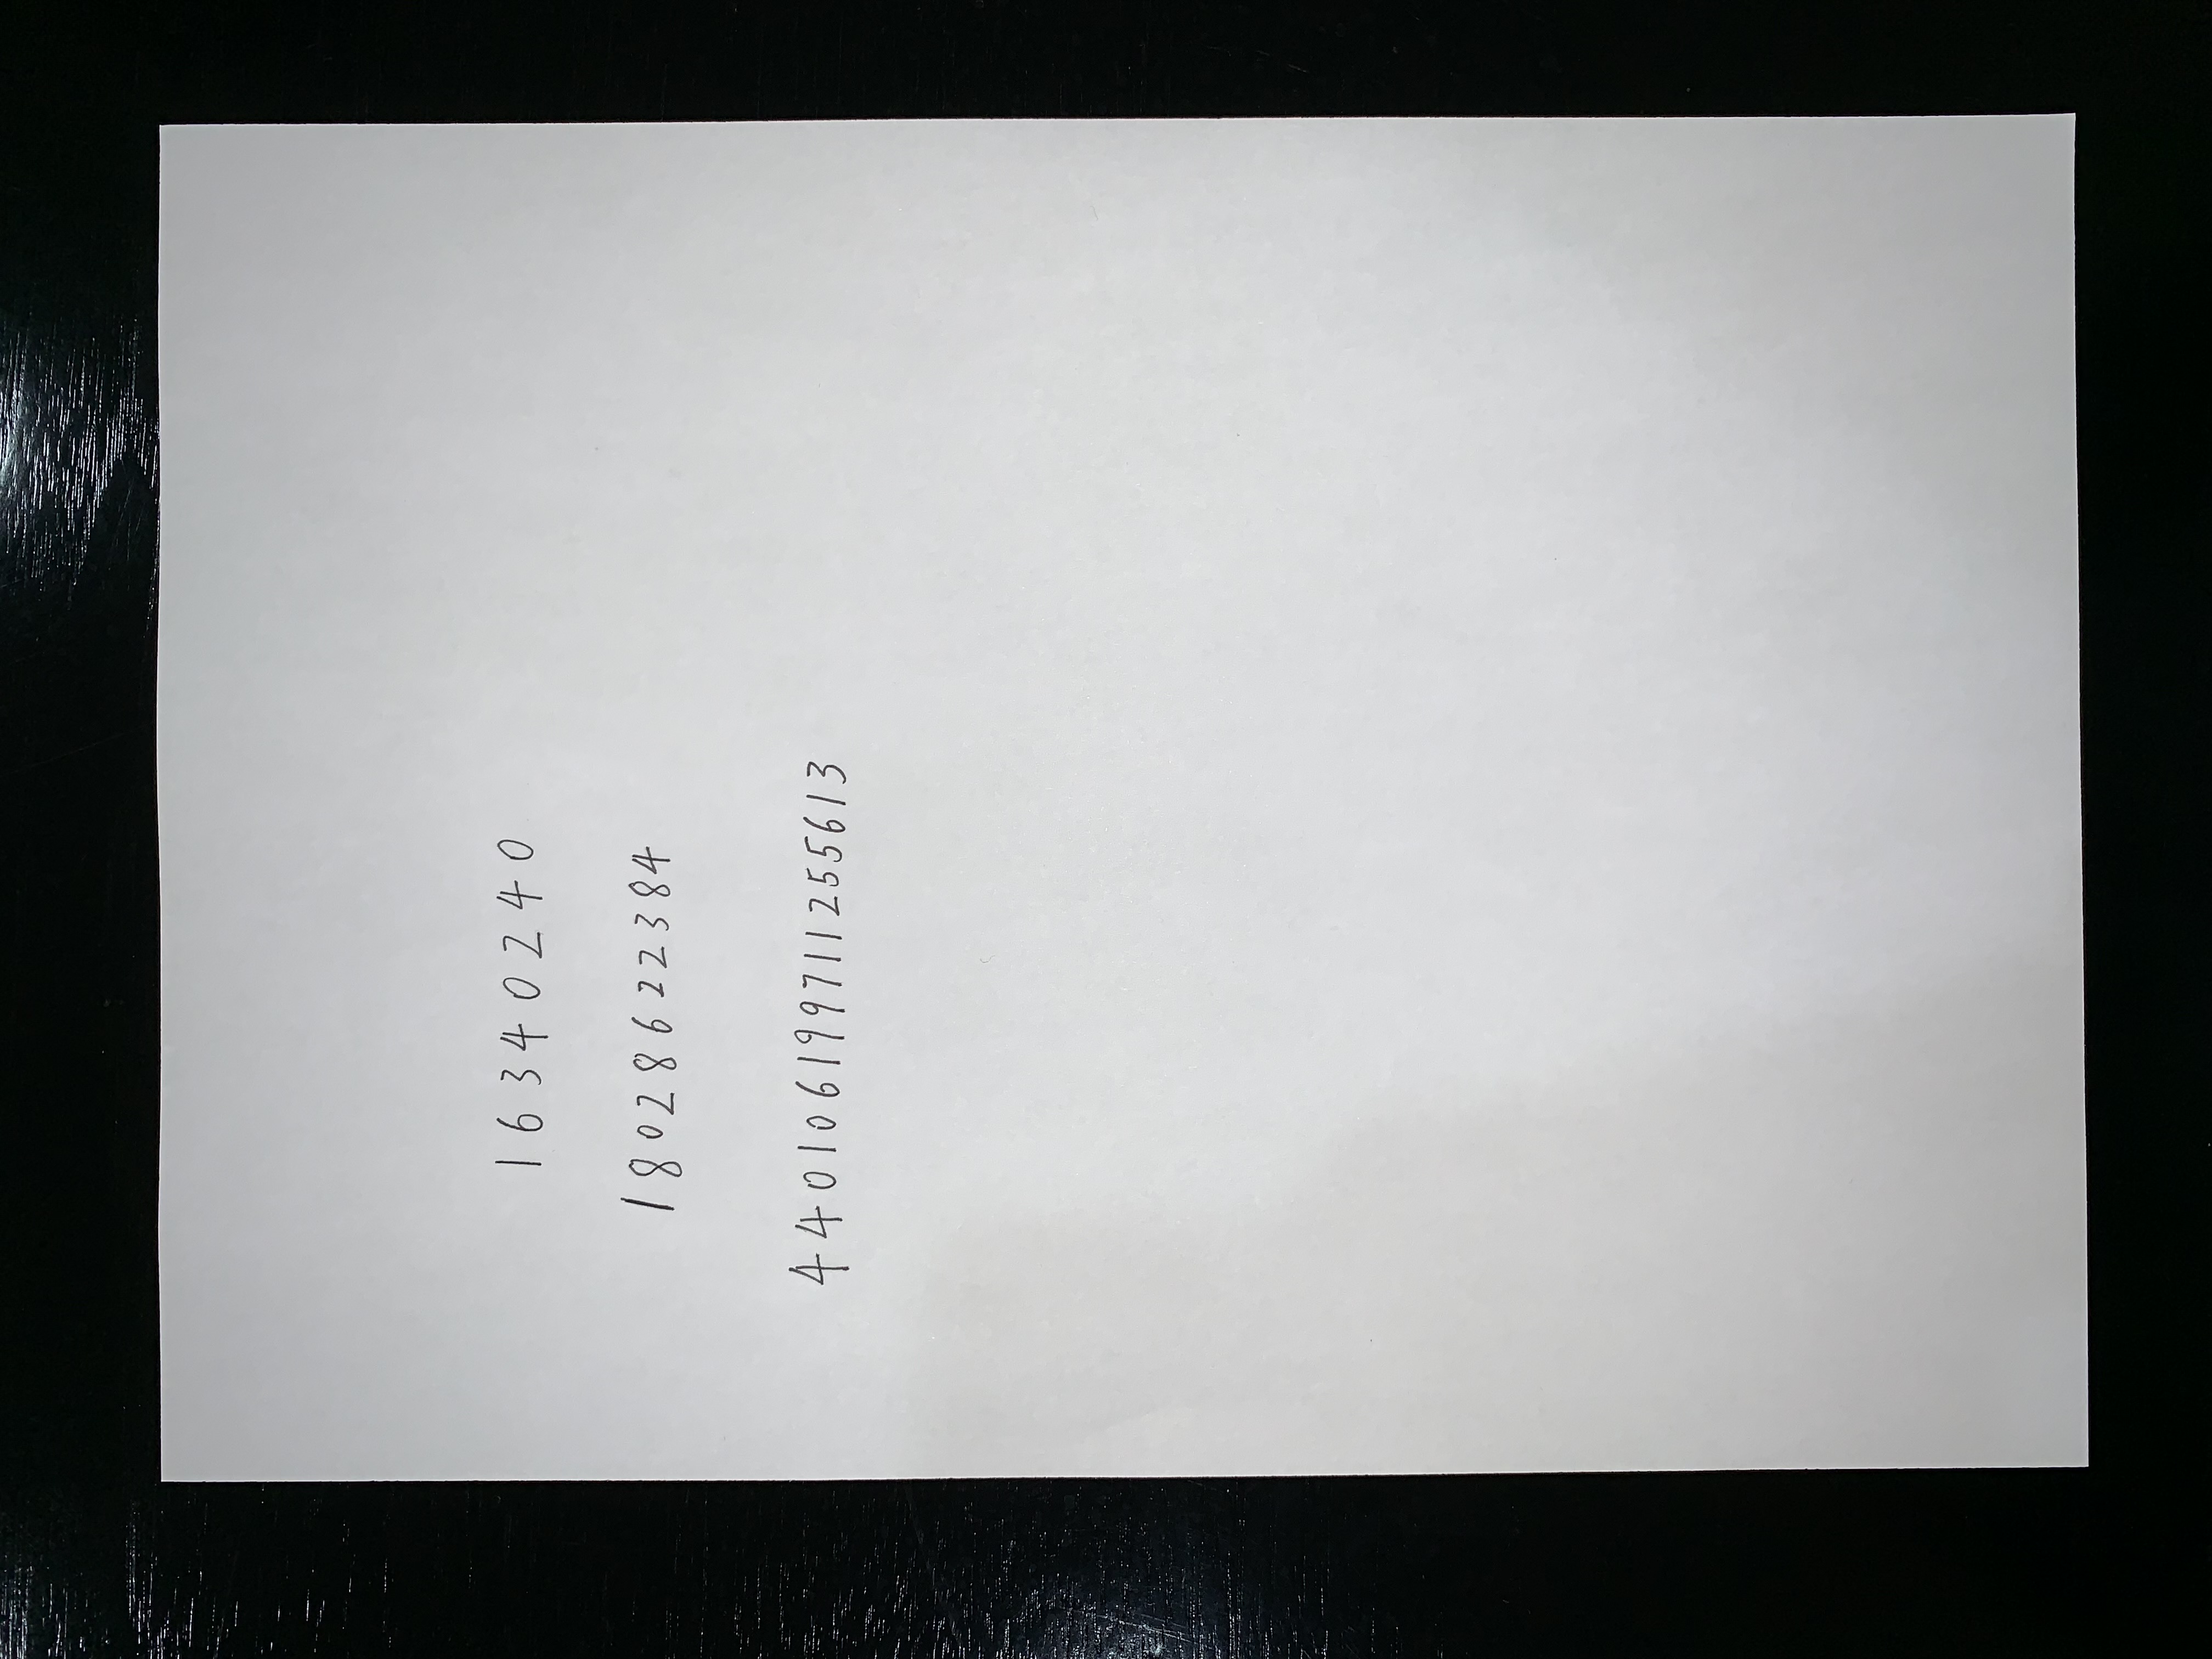 16340240
18028622384
440106199711255613